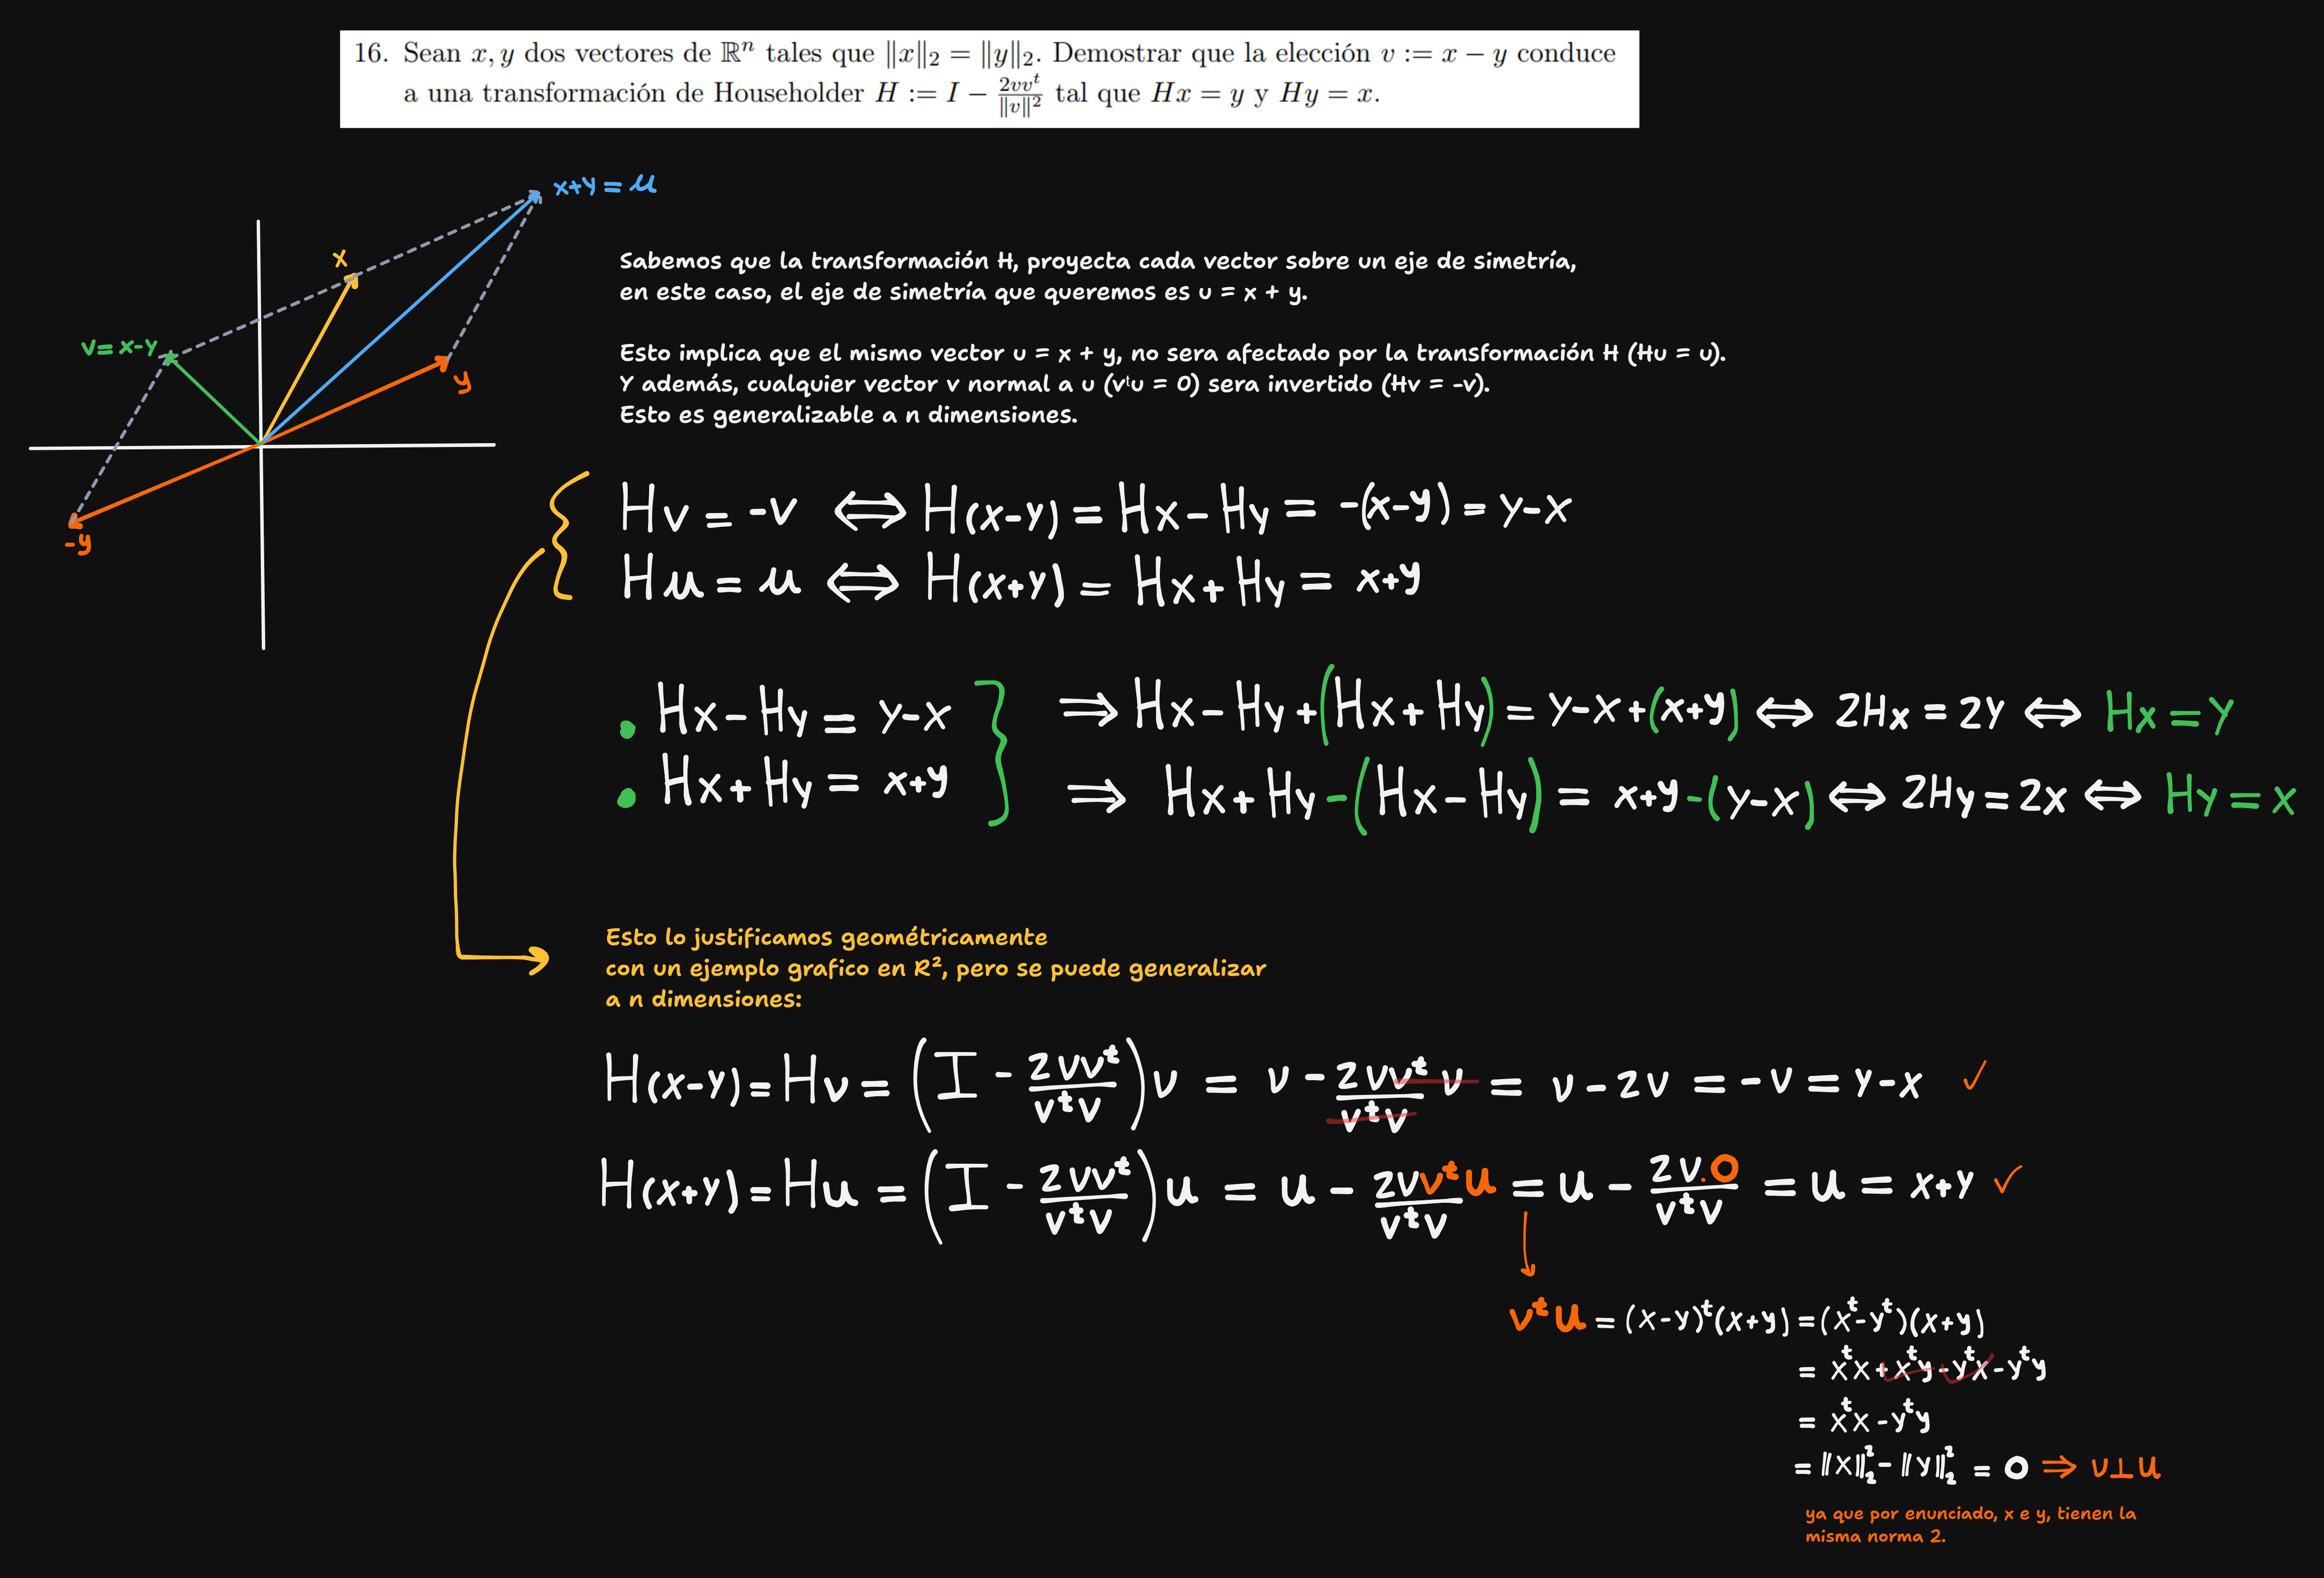 16. Sean x, y dos vectores de ℝⁿ tales que ‖x‖₂ = ‖y‖₂. Demostrar que la elección v := x − y conduce
a una transformación de Householder H := I − 2vvᵗ/‖v‖² tal que Hx = y y Hy = x.
x+y = u
x
v = x-y
y
-y
Sabemos que la transformación H, proyecta cada vector sobre un eje de simetría,
en este caso, el eje de simetría que queremos es u = x + y.
Esto implica que el mismo vector u = x + y, no sera afectado por la transformación H (Hu = u).
Y además, cualquier vector v normal a u (vᵗu = 0) sera invertido (Hv = -v).
Esto es generalizable a n dimensiones.
Hv = -v ⟺ H(x-y) = Hx - Hy = -(x-y) = y-x
Hu = u ⟺ H(x+y) = Hx + Hy = x+y
• Hx - Hy = y-x ⟹ Hx - Hy + (Hx + Hy) = y-x+(x+y) ⟺ 2Hx = 2y ⟺ Hx = y
• Hx + Hy = x+y ⟹ Hx + Hy - (Hx - Hy) = x+y-(y-x) ⟺ 2Hy = 2x ⟺ Hy = x
Esto lo justificamos geométricamente
con un ejemplo grafico en R², pero se puede generalizar
a n dimensiones:
H(x-y) = Hv = (I - 2vvᵗ/vᵗv)v = v - 2vvᵗ/vᵗv v = v - 2v = -v = y-x ✓
H(x+y) = Hu = (I - 2vvᵗ/vᵗv)u = u - 2vvᵗu/vᵗv = u - 2v.0/vᵗv = u = x+y ✓
vᵗu = (x-y)ᵗ(x+y) = (xᵗ-yᵗ)(x+y)
= xᵗx + xᵗy - yᵗx - yᵗy
= xᵗx - yᵗy
= ‖x‖₂² - ‖y‖₂² = 0 ⟹ v⊥u
ya que por enunciado, x e y, tienen la
misma norma 2.